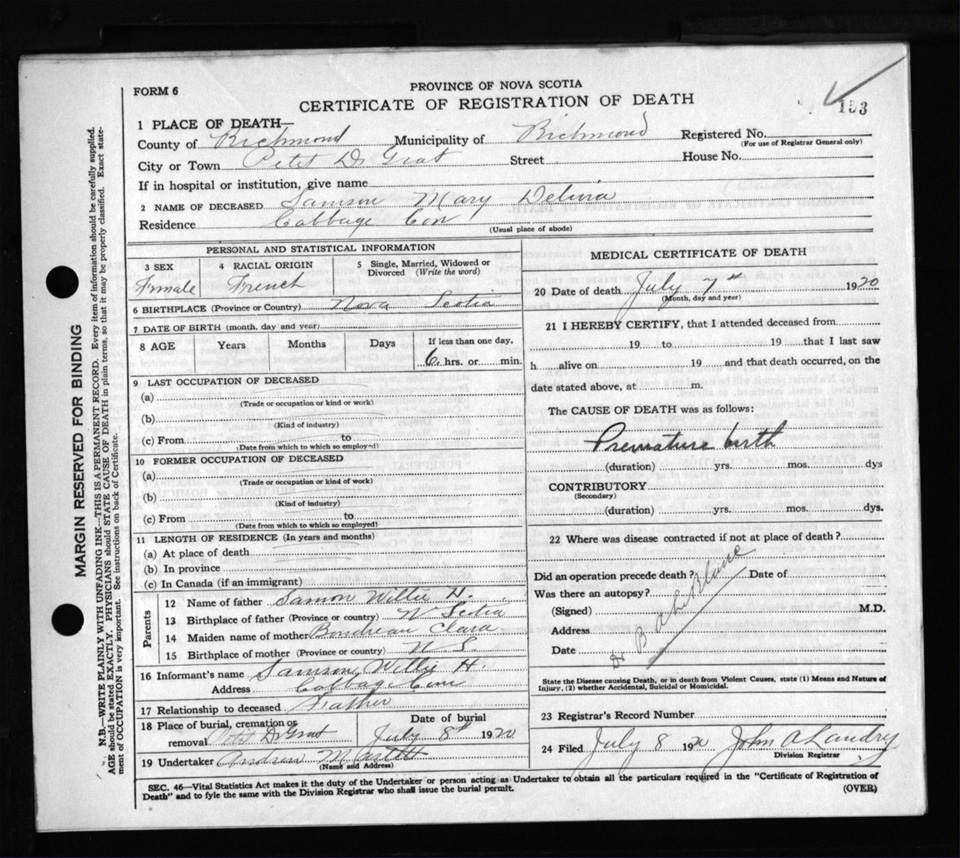 FORM 6
PROVINCE OF NOVA SCOTIA
CERTIFICATE OF REGISTRATION OF DEATH
153
1 PLACE OF DEATH—
County of Richmond Municipality of Richmond Registered No.
(For use of Registrar General only)
City or Town Petit De Grat Street House No.
If in hospital or institution, give name
2 NAME OF DECEASED Samson Mary Delivia
Residence Cabbage Cove
(Usual place of abode)
PERSONAL AND STATISTICAL INFORMATION
3 SEX 4 RACIAL ORIGIN 5 Single, Married, Widowed or Divorced (Write the word)
Female French
6 BIRTHPLACE (Province or Country) Nova Scotia
7 DATE OF BIRTH (month, day and year)
8 AGE Years Months Days If less than one day,
6 hrs. or min.
9 LAST OCCUPATION OF DECEASED
(a)
(Trade or occupation or kind or work)
(b)
(Kind of industry)
(c) From to
(Date from which to which so employed)
10 FORMER OCCUPATION OF DECEASED
(a)
(Trade or occupation or kind of work)
(b)
(Kind of industry)
(c) From to
(Date from which to which so employed)
11 LENGTH OF RESIDENCE (In years and months)
(a) At place of death
(b) In province
(c) In Canada (if an immigrant)
Parents
12 Name of father Samson Willie H.
13 Birthplace of father (Province or country) N Scotia
14 Maiden name of mother Boudreau Clara
15 Birthplace of mother (Province or country) N S
16 Informant's name Samson Willie H.
Address Cabbage Cove
17 Relationship to deceased Father
18 Place of burial, cremation or removal Petit De Grat Date of burial July 8th 1920
19 Undertaker Andrew
(Name and Address)
MEDICAL CERTIFICATE OF DEATH
20 Date of death July 7th 1920
(Month, day and year)
21 I HEREBY CERTIFY, that I attended deceased from
19 to 19 that I last saw
h alive on 19 and that death occurred, on the
date stated above, at m.
The CAUSE OF DEATH was as follows:
Premature birth
(duration) yrs. mos. dys
CONTRIBUTORY
(Secondary)
(duration) yrs. mos. dys.
22 Where was disease contracted if not at place of death?
Did an operation precede death? Date of
Was there an autopsy?
(Signed) M.D.
Address
Date
Dr B A LeBlanc
State the Disease causing Death, or in death from Violent Causes, state (1) Means and Nature of
Injury, (2) whether Accidental, Suicidal or Homicidal.
23 Registrar's Record Number
24 Filed July 8 1920 John A Landry
Division Registrar
SEC. 46—Vital Statistics Act makes it the duty of the Undertaker or person acting as Undertaker to obtain all the particulars required in the "Certificate of Registration of
Death" and to fyle the same with the Division Registrar who shall issue the burial permit.
(OVER)
MARGIN RESERVED FOR BINDING
N.B.—WRITE PLAINLY WITH UNFADING INK—THIS IS A PERMANENT RECORD. Every item of information should be carefully supplied.
AGE should be stated EXACTLY. PHYSICIANS should STATE CAUSE OF DEATH in plain terms, so that it may be properly classified. Exact state-
ment of OCCUPATION is very important. See instructions on back of Certificate.